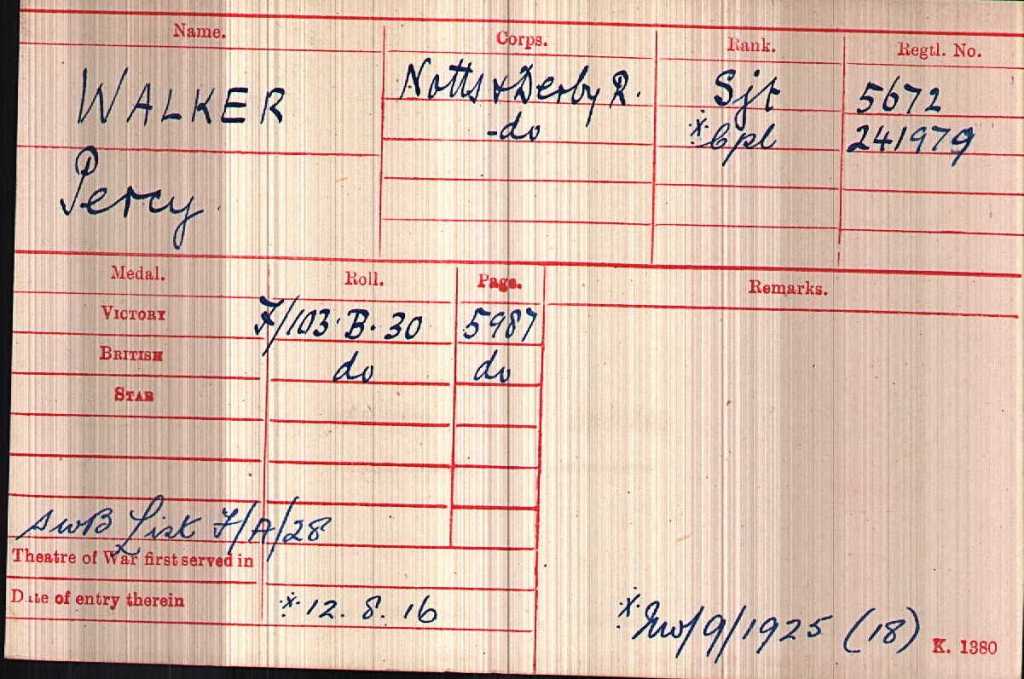 Name. Corps. Rank. Regtl. No.
WALKER Notts & Derby R. Sjt 5672
-do ※Cpl 241979
Percy.
Medal. Roll. Page. Remarks.
VICTORY F/103.B.30 5987
BRITISH do do
STAR
SWB List F/A/28
Theatre of War first served in
Date of entry therein ※12.8.16
※ /9/1925 (18) K. 1380